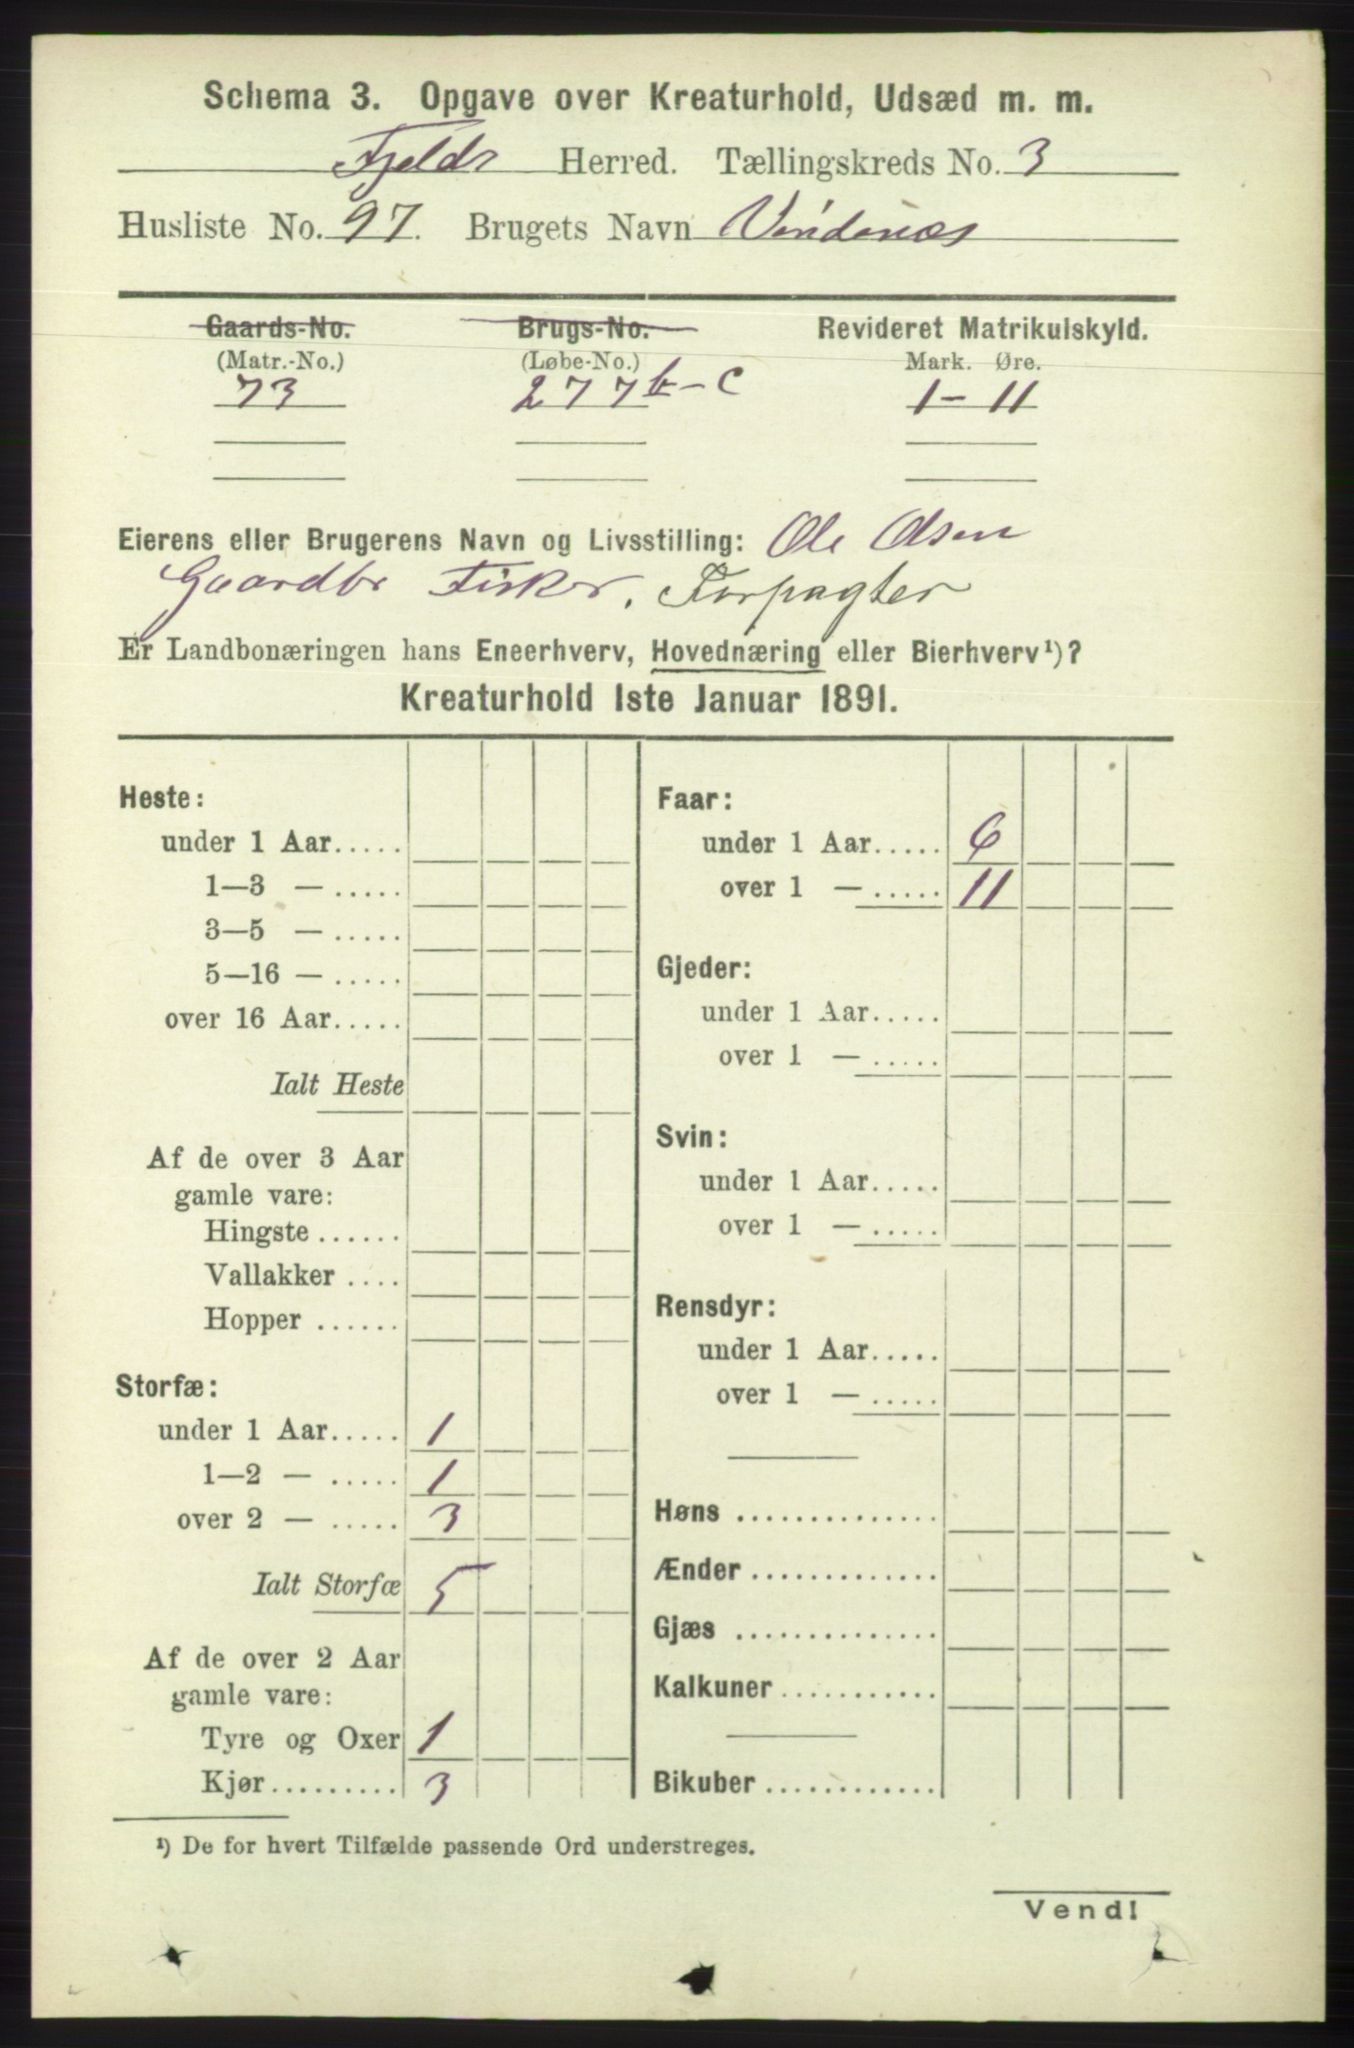 Schema 3. Opgave over Kreaturhold, Udsæd m. m.
Fjelds Herred. Tællingskreds No. 3
Husliste No. 97. Brugets Navn Vindenæs
Gaards-No. Brugs-No. Revideret Matrikulskyld.
(Matr.-No.) (Løbe-No.) Mark. Øre.
73 277 b-c 1-11
Eierens eller Brugerens Navn og Livsstilling: Ole Olsen
Gaardbr Fisker, Forpagter
Er Landbonæringen hans Eneerhverv, Hovednæring eller Bierhverv¹)?
Kreaturhold 1ste Januar 1891.
Heste:
under 1 Aar.....
1—3 — .....
3—5 — .....
5—16 — .....
over 16 Aar.....
Ialt Heste
Af de over 3 Aar
gamle vare:
Hingste ......
Vallakker ....
Hopper ......
Storfæ:
under 1 Aar..... 1
1—2 — ..... 1
over 2 — ..... 3
Ialt Storfæ 5
Af de over 2 Aar
gamle vare:
Tyre og Oxer 1
Kjør......... 3
Faar:
under 1 Aar..... 6
over 1 — ..... 11
Gjeder:
under 1 Aar.....
over 1 — .....
Svin:
under 1 Aar.....
over 1 — .....
Rensdyr:
under 1 Aar.....
over 1 — .....
Høns ..............
Ænder .............
Gjæs ..............
Kalkuner ...........
Bikuber .............
¹) De for hvert Tilfælde passende Ord understreges.
Vend!